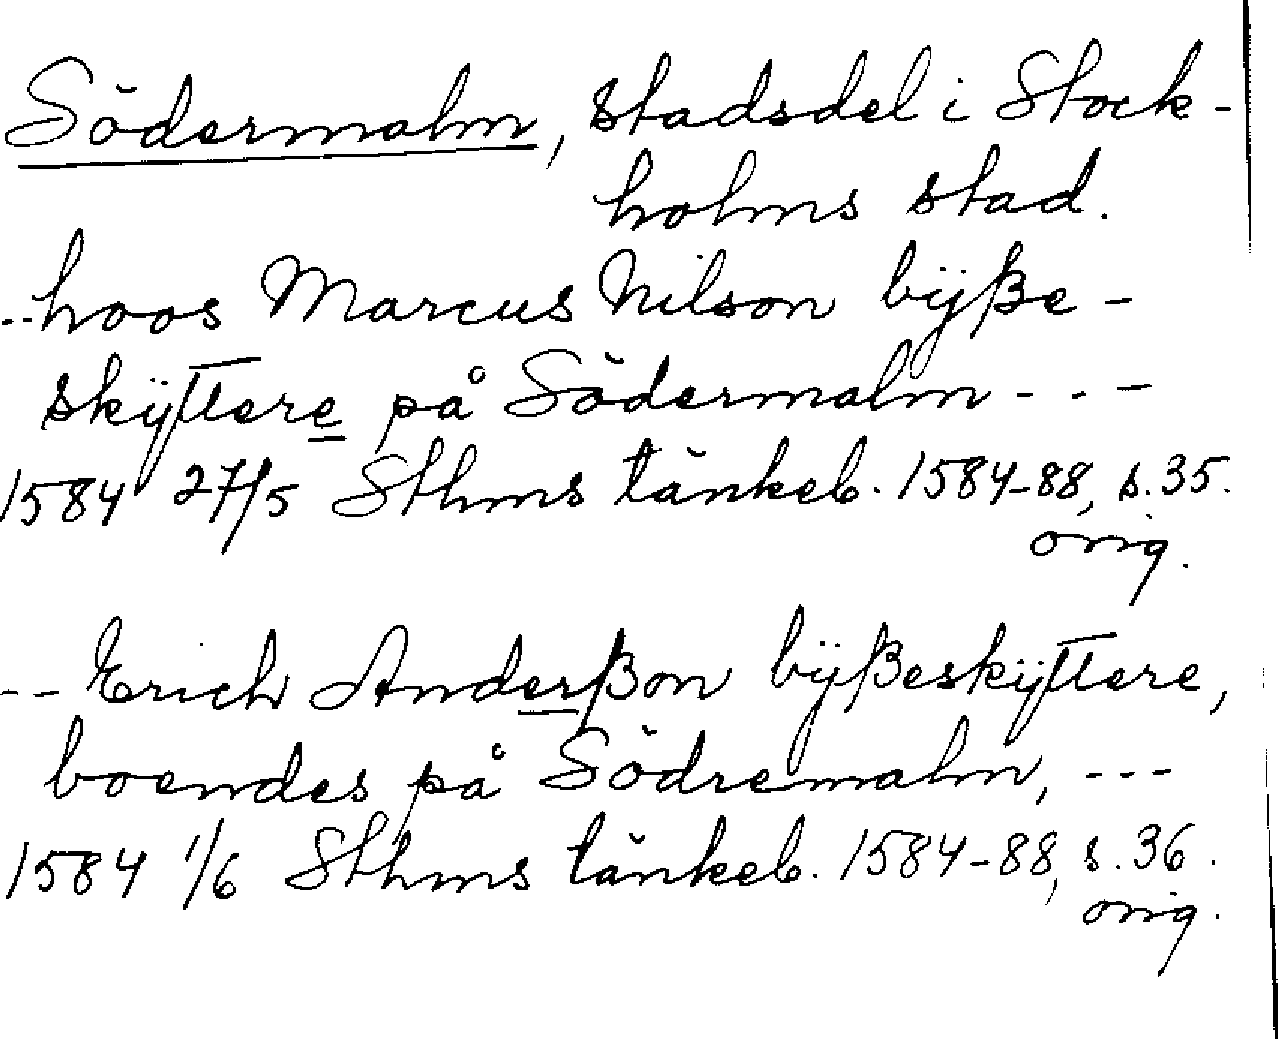 Södermalm, stadsdel i Stock-
holms stad.
--hoos Marcus Nilson bÿße-
skÿttere på Södermalm ---
1584 27/5 Sthms tänkeb. 1584-88, s. 35.
orig.
-- Erich Anderßon bÿßeskÿttere,
boendes på Södremalm, ---
1584 1/6 Sthms tänkeb. 1584-88, s. 36.
orig.